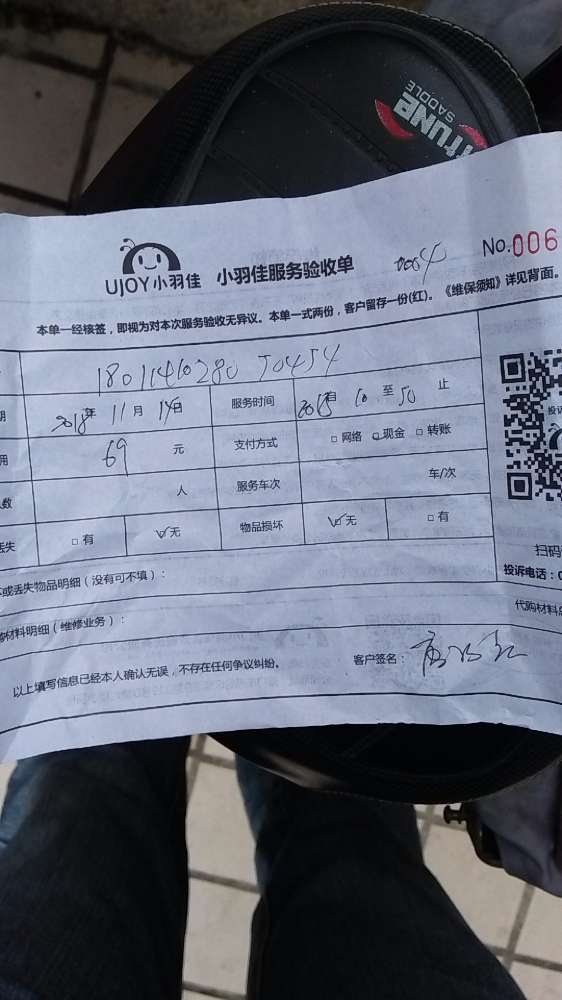 TUNE
SADDLE
UJOY小羽佳 小羽佳服务验收单 No.006
本单一经核签，即视为对本次服务验收无异议。本单一式两份，客户留存一份(红)。《维保须知》详见背面。
18011410280 50454
期 2018年 11月 14日 服务时间 至 50 止
用 69 元 支付方式 □ 网络 □ 现金 □ 转账
人数 人 服务车次 车/次
丢失 □ 有 ☑ 无 物品损坏 ☑ 无 □ 有
坏或丢失物品明细（没有可不填）：
扫码
投诉电话：0
购材料明细（维修业务）：
代购材料总
以上填写信息已经本人确认无误，不存在任何争议纠纷。 客户签名：